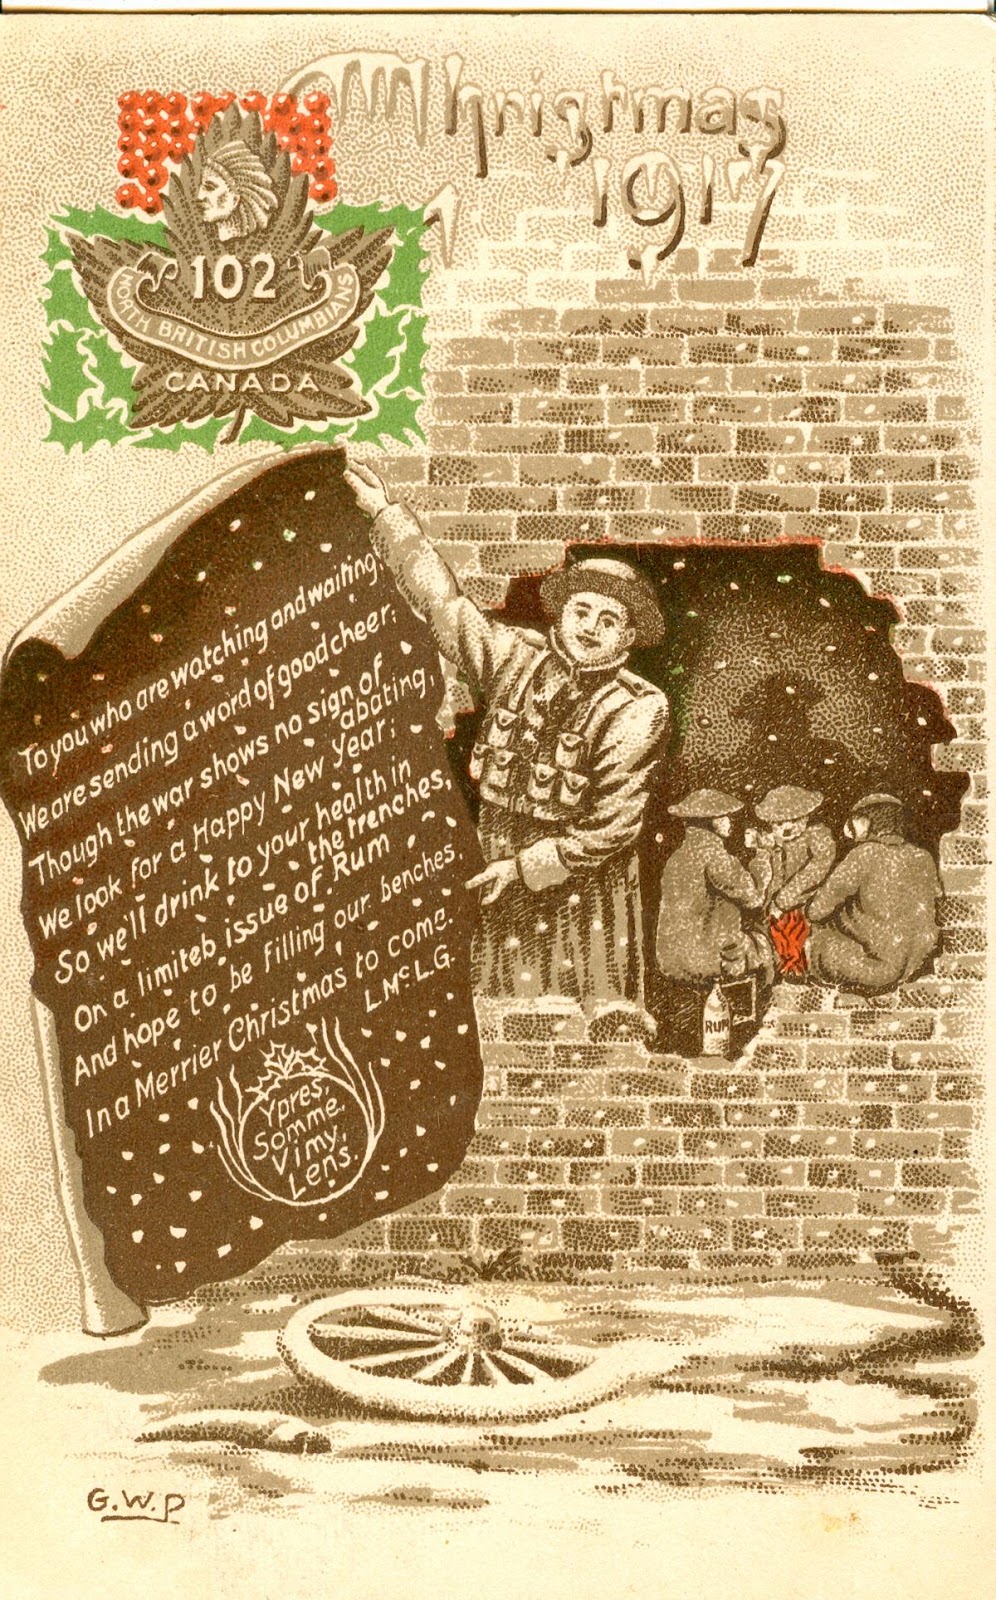 Christmas
1917
102
NORTH BRITISH COLUMBIANS
CANADA
To you who are watching and waiting,
We are sending a word of good cheer;
Though the war shows no sign of
abating,
We look for a Happy New Year;
So we'll drink to your health in
the trenches,
On a limiteb issue of Rum
And hope to be filling our benches,
In a Merrier Christmas to come.
L.McL.G.
Ypres,
Somme,
Vimy,
Lens.
RUM
G.W.P